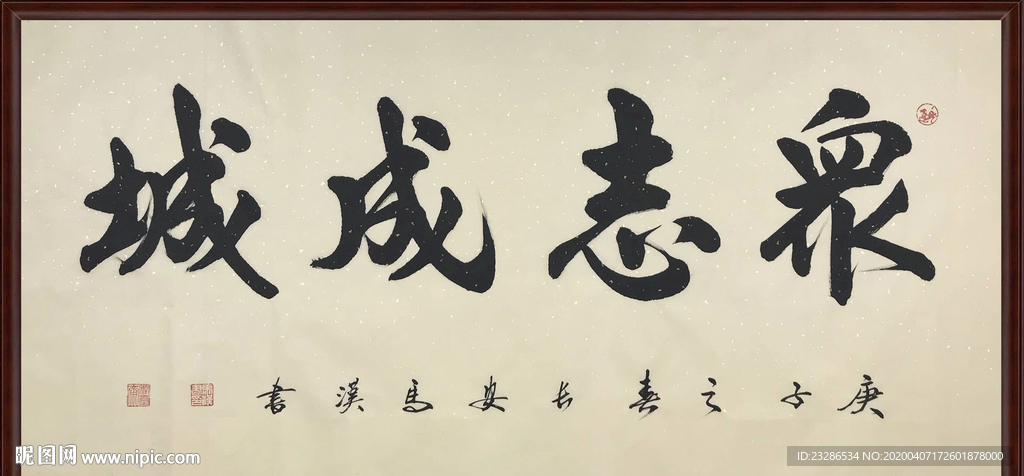 眾志成城
庚子之春長安馬漢書
昵图网 www.nipic.com
ID:23286534 NO:20200407172601878000